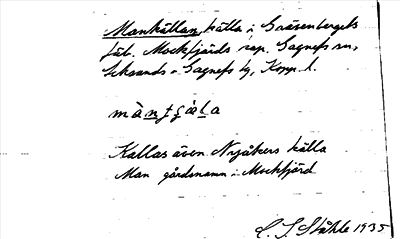 Mankällan källa i Gråsenbergets
fäb. Mockfjärds kap. Gagnefs sn,
Leksands o Gagnefs tg, Kopp. l.
Kallas även Nyåkers källa
Man gårdsnamn i Mockfjärd
C. I. Ståhle 1935